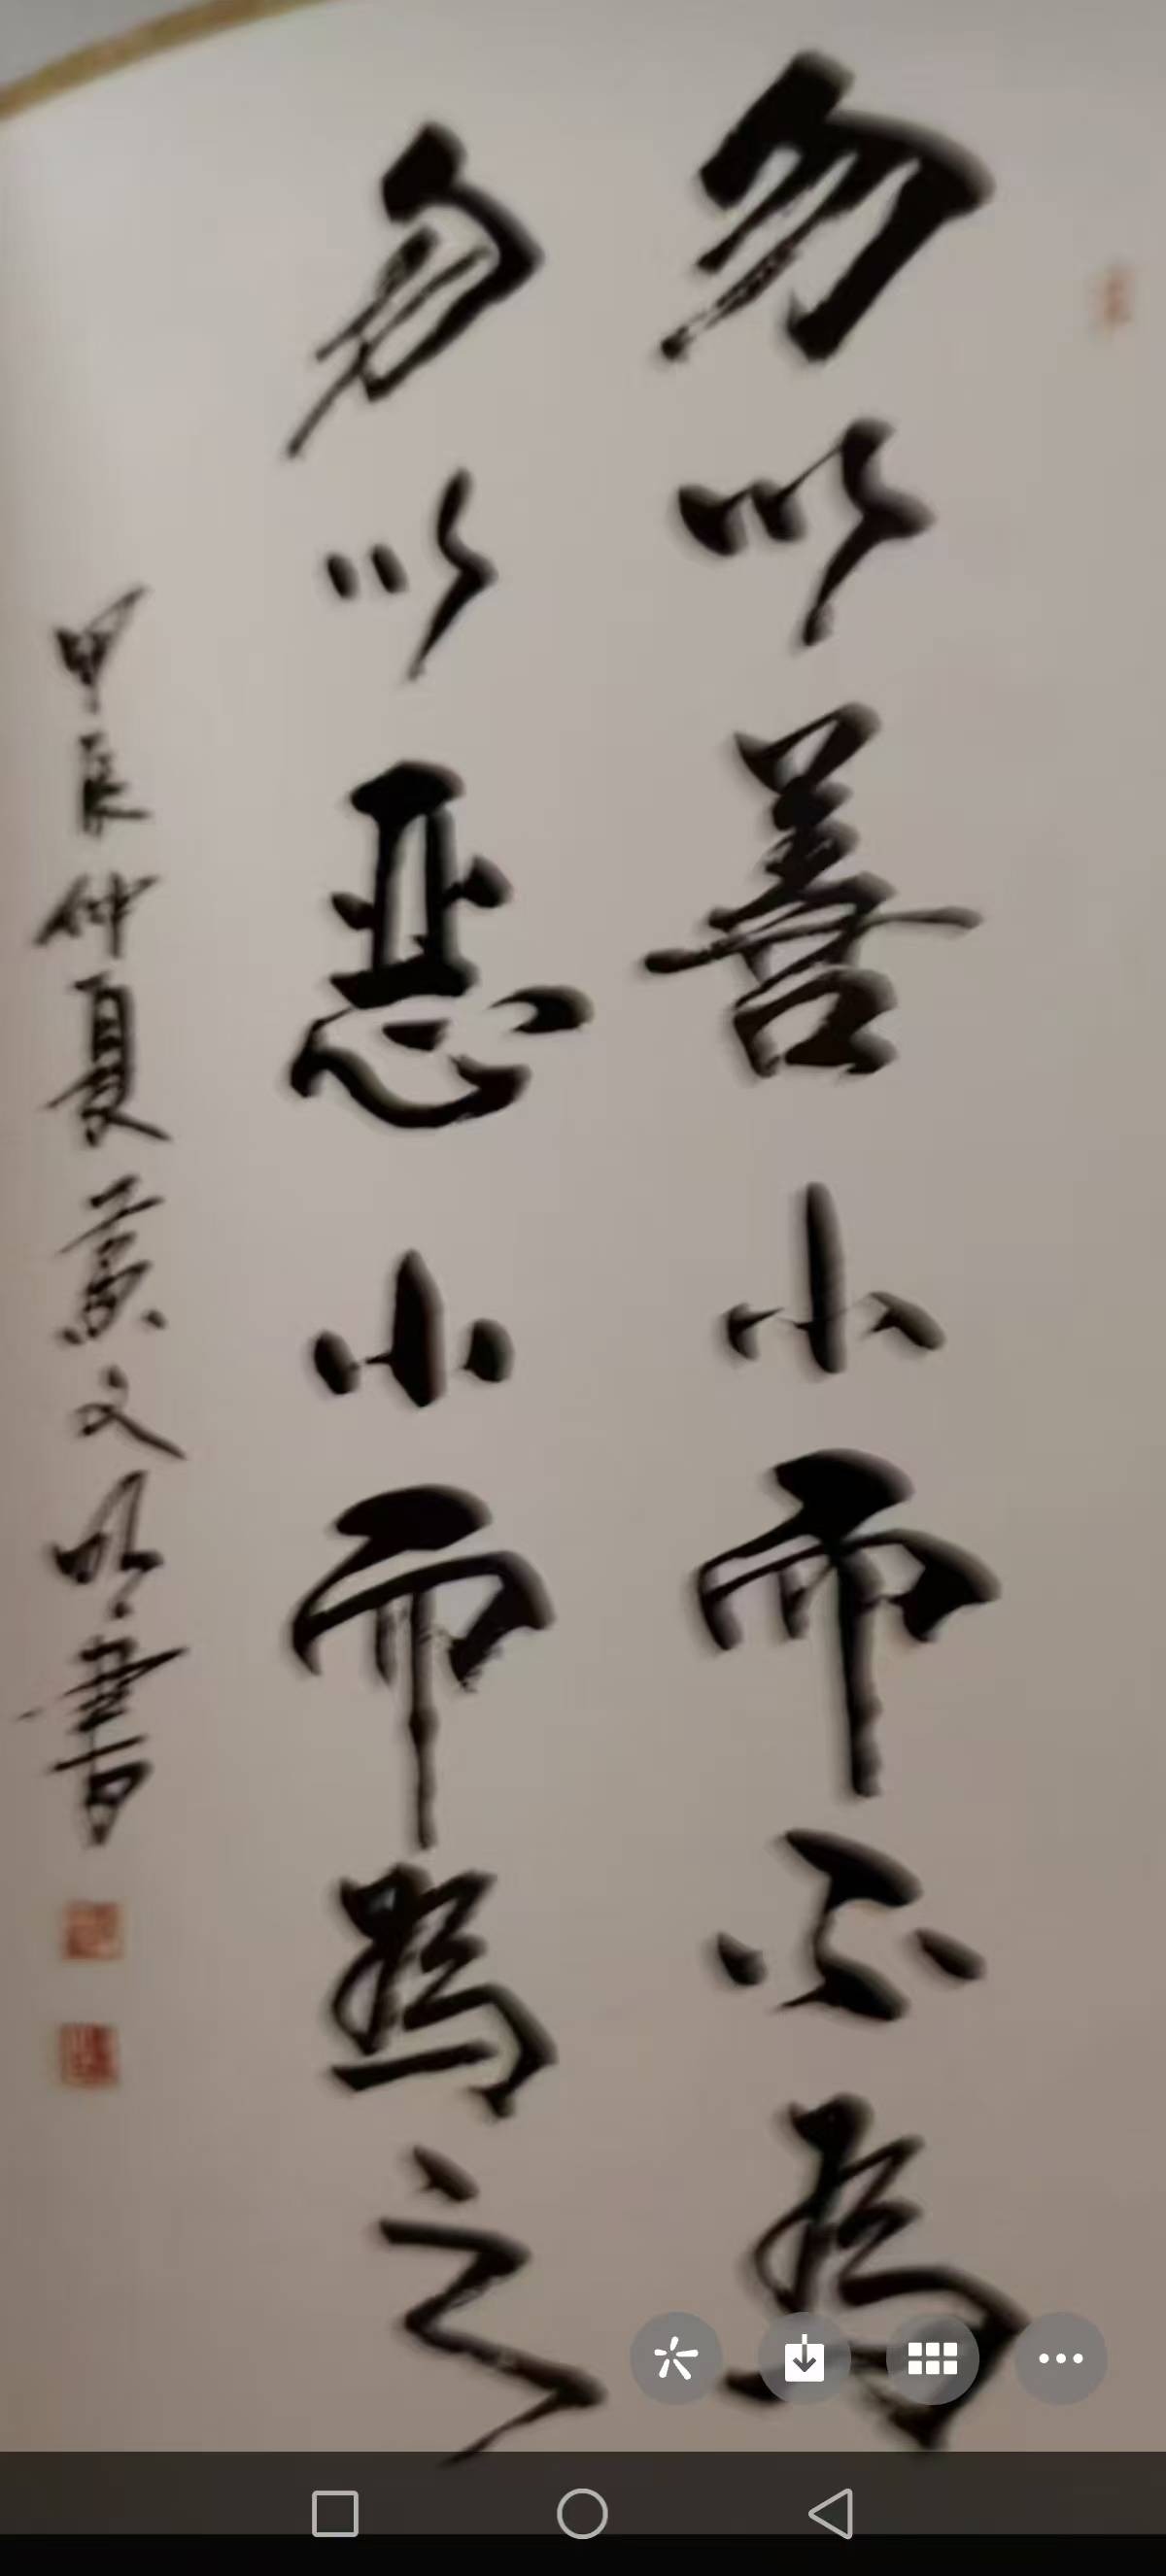 勿以善小而不為
勿以惡小而為之
甲辰仲夏黄文明書